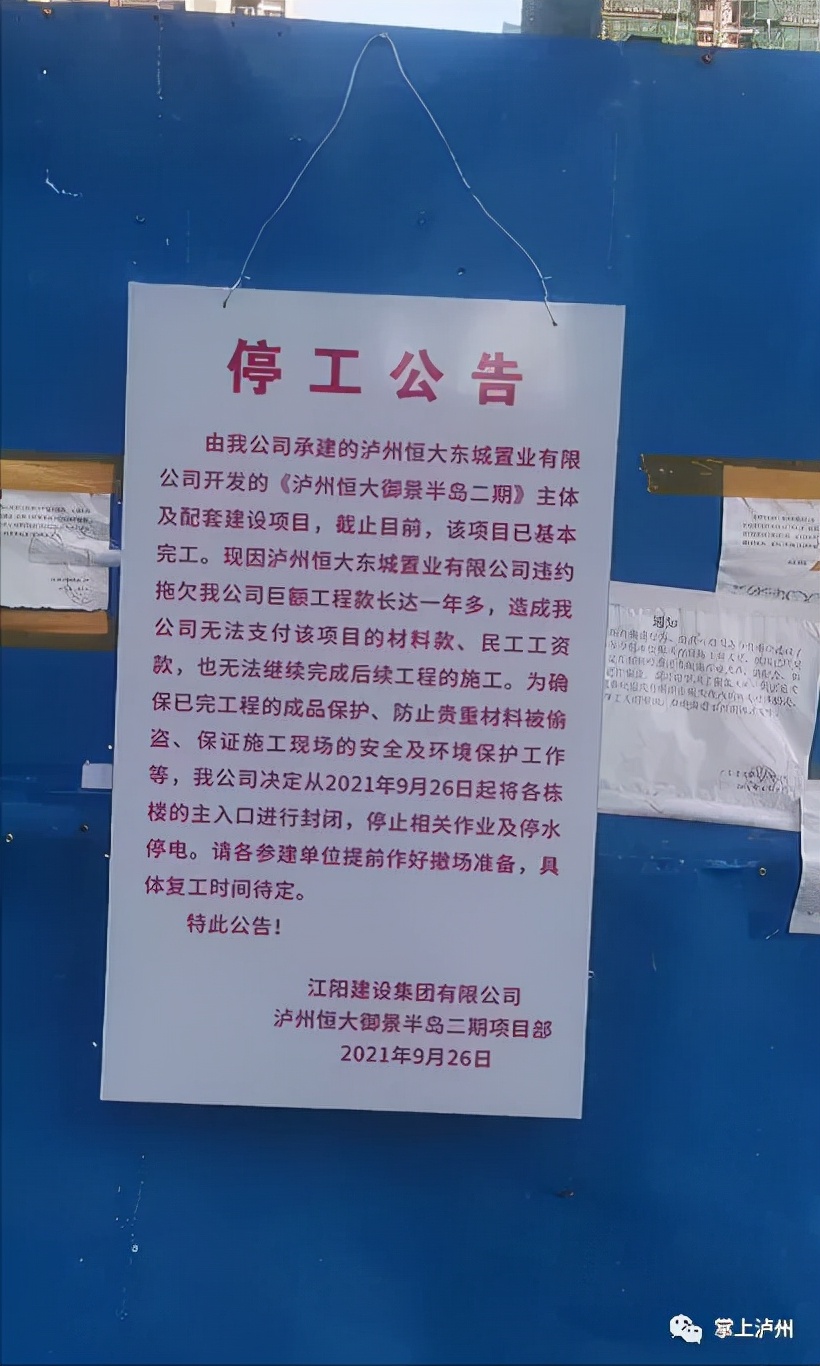 停工公告
由我公司承建的泸州恒大东城置业有限
公司开发的《泸州恒大御景半岛二期》主体
及配套建设项目，截止目前，该项目已基本
完工。现因泸州恒大东城置业有限公司违约
拖欠我公司巨额工程款长达一年多，造成我
公司无法支付该项目的材料款、民工工资
款，也无法继续完成后续工程的施工。为确
保已完工程的成品保护、防止贵重材料被偷
盗、保证施工现场的安全及环境保护工作
等，我公司决定从2021年9月26日起将各栋
楼的主入口进行封闭，停止相关作业及停水
停电。请各参建单位提前作好撤场准备，具
体复工时间待定。
特此公告！
江阳建设集团有限公司
泸州恒大御景半岛二期项目部
2021年9月26日
掌上泸州